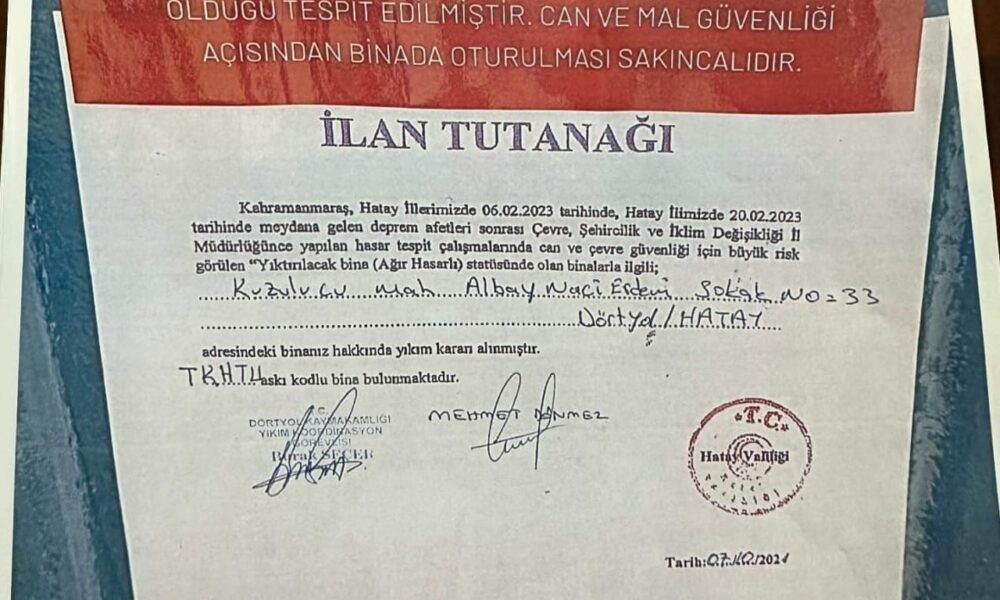 OLDUĞU TESPİT EDİLMİŞTİR. CAN VE MAL GÜVENLİĞİ
AÇISINDAN BİNADA OTURULMASI SAKINCALIDIR.
İLAN TUTANAĞI
Kahramanmaraş, Hatay İllerimizde 06.02.2023 tarihinde, Hatay İlimizde 20.02.2023
tarihinde meydana gelen deprem afetleri sonrası Çevre, Şehircilik ve İklim Değişikliği İl
Müdürlüğünce yapılan hasar tespit çalışmalarında can ve çevre güvenliği için büyük risk
görülen "Yıktırılacak bina (Ağır Hasarlı) statüsünde olan binalarla ilgili;
Kuzuluçu mah Albay Naci Erdeni Sokak NO=33
Dörtyol/HATAY
adresindeki binanız hakkında yıkım kararı alınmıştır.
TKHTU askı kodlu bina bulunmaktadır.
T.C.
DÖRTYOL KAYMAKAMLIĞI
YIKIM KOORDİNASYON
GÖREVLİSİ
Burak SEÇER
MEHMET DÖNMEZ
T.C.
Hatay Valiliği
Tarih:07.10.2024